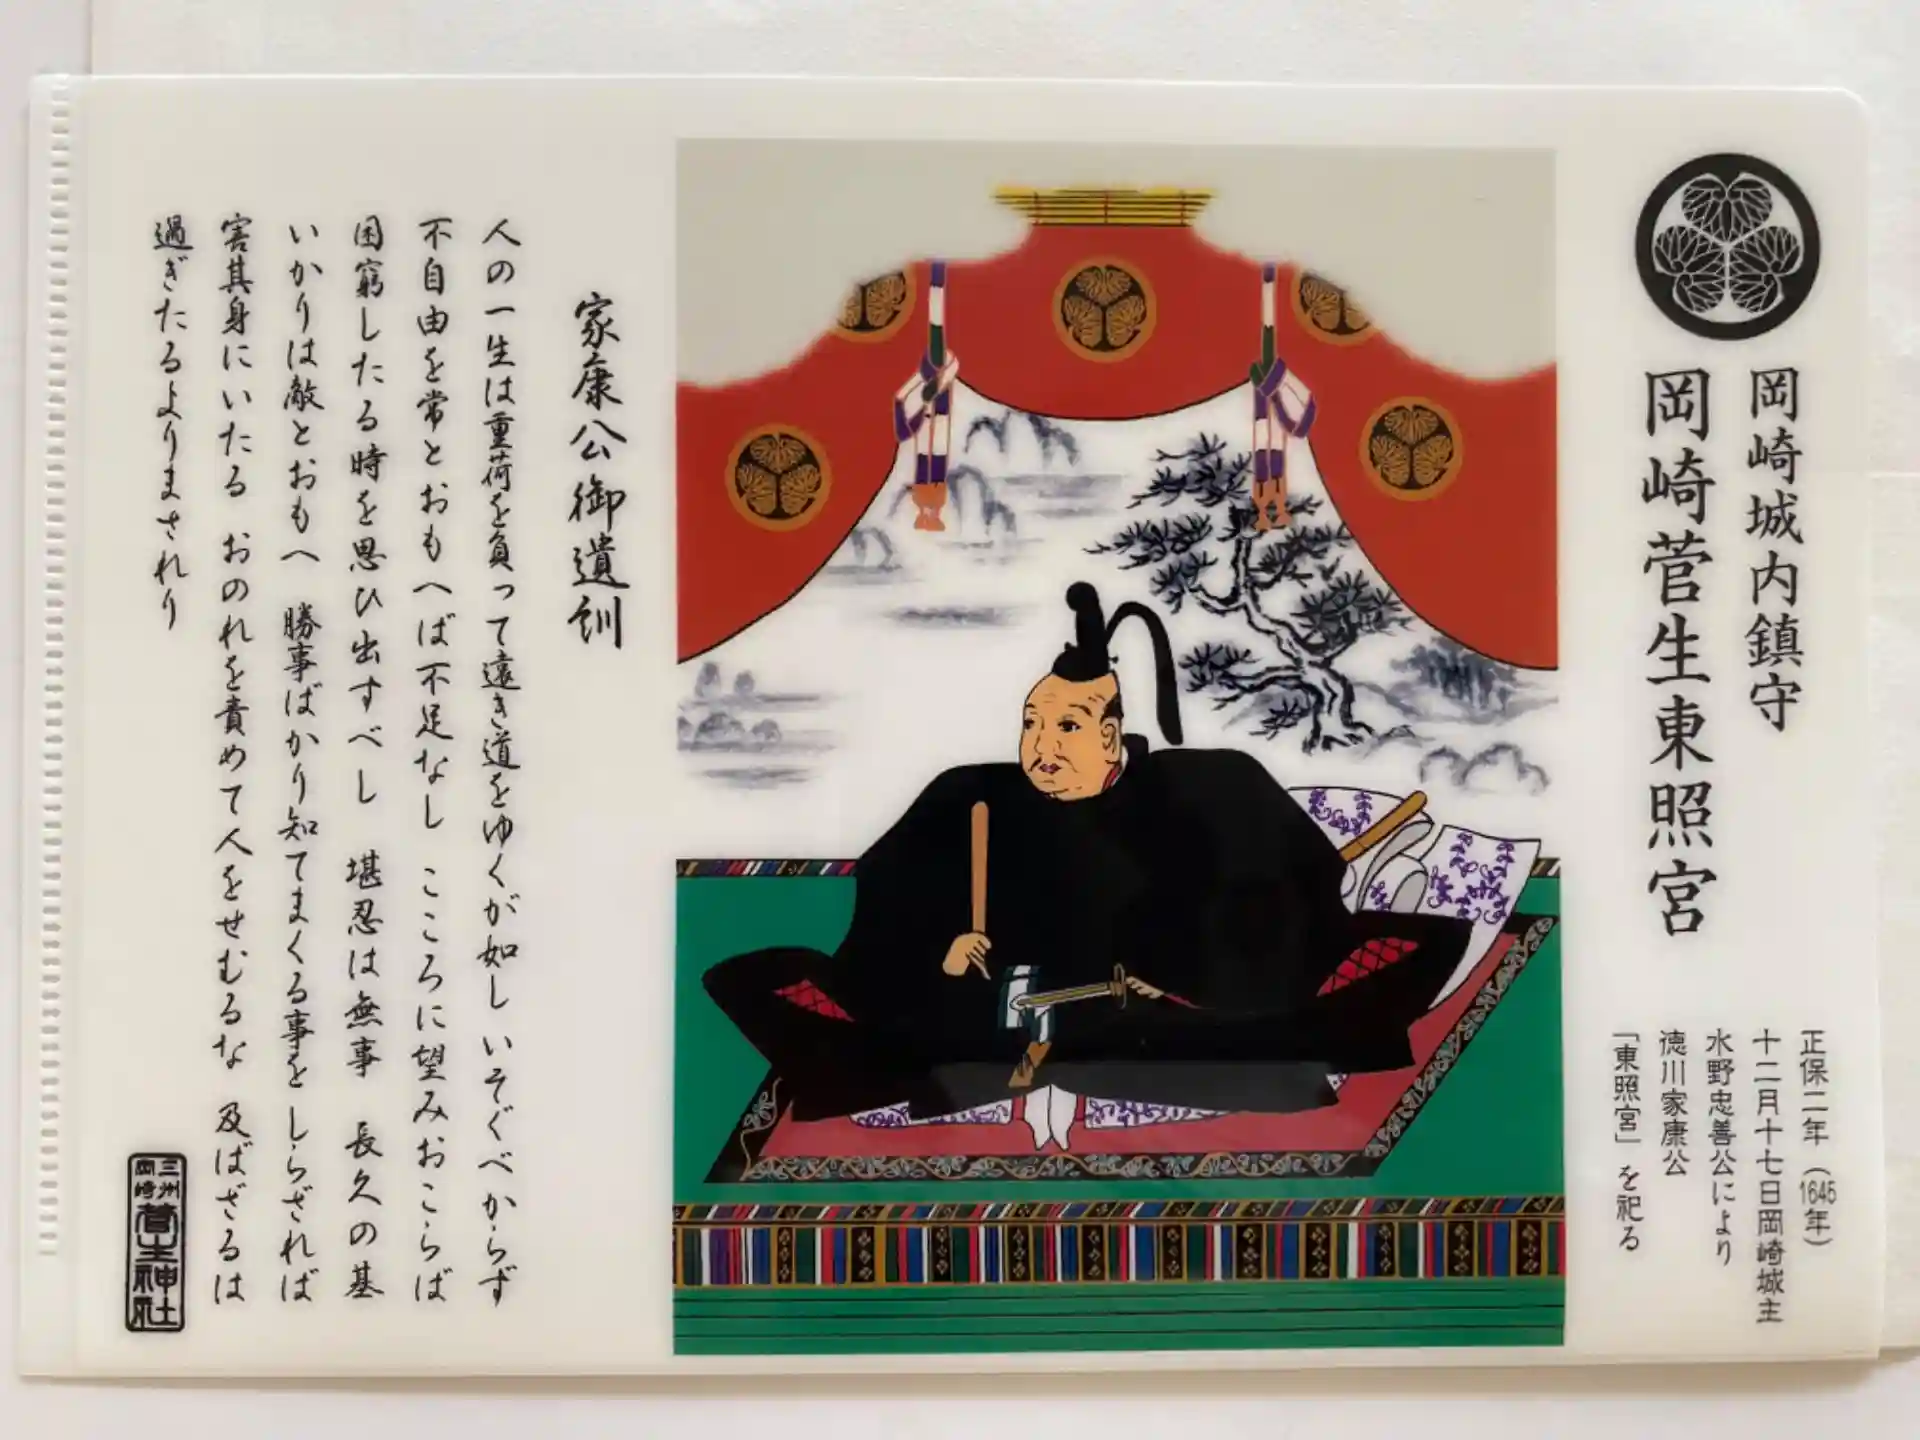 岡崎城内鎮守
岡崎菅生東照宮
正保二年（1645年）
十二月十七日岡崎城主
水野忠善公により
徳川家康公
「東照宮」を祀る
家康公御遺訓
人の一生は重荷を負って遠き道をゆくが如し いそぐべからず
不自由を常とおもへば不足なし こころに望みおこらば
困窮したる時を思ひ出すべし 堪忍は無事 長久の基
いかりは敵とおもへ 勝事ばかり知てまくる事を しらざれば
害其身にいたる おのれを責めて人をせむるな 及ばざるは
過ぎたるよりまされり
三州
岡崎
菅生神社